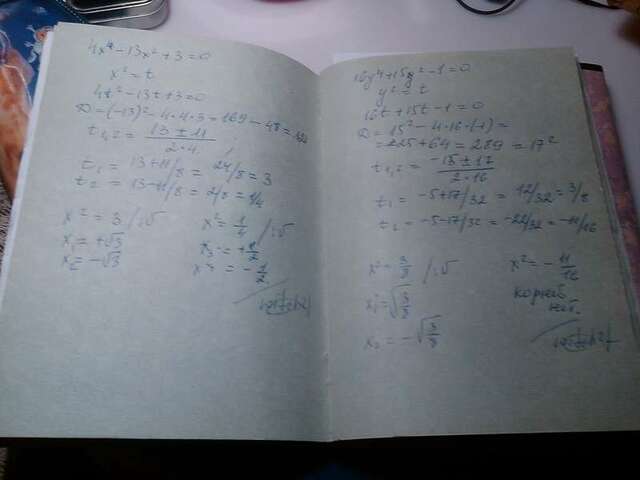 4x⁴-13x²+3=0
x²=t
4t²-13t+3=0
D=(-13)²-4·4·3=169-48=
t₁,₂=13±11/2·4
t₁=13+11/8=24/8=3
t₂=13-11/8=2/8=1/4
x²=3/√ x²=1/4/√
x₁=+√3 x₃=+1/2
x₂=-√3 x₄=-1/2
16y⁴+15y²-1=0
y²=t
16t+15t-1=0
D=15²-4·16·(-1)=
=225+64=289=17²
t₁,₂=-15±17/2·16
t₁=-5+17/32=12/32=3/8
t₂=-5-17/32=-22/32=-11/16
x²=3/8/√ x²=-11/16
x₁=√3/8 корней
нет.
x₂=-√3/8